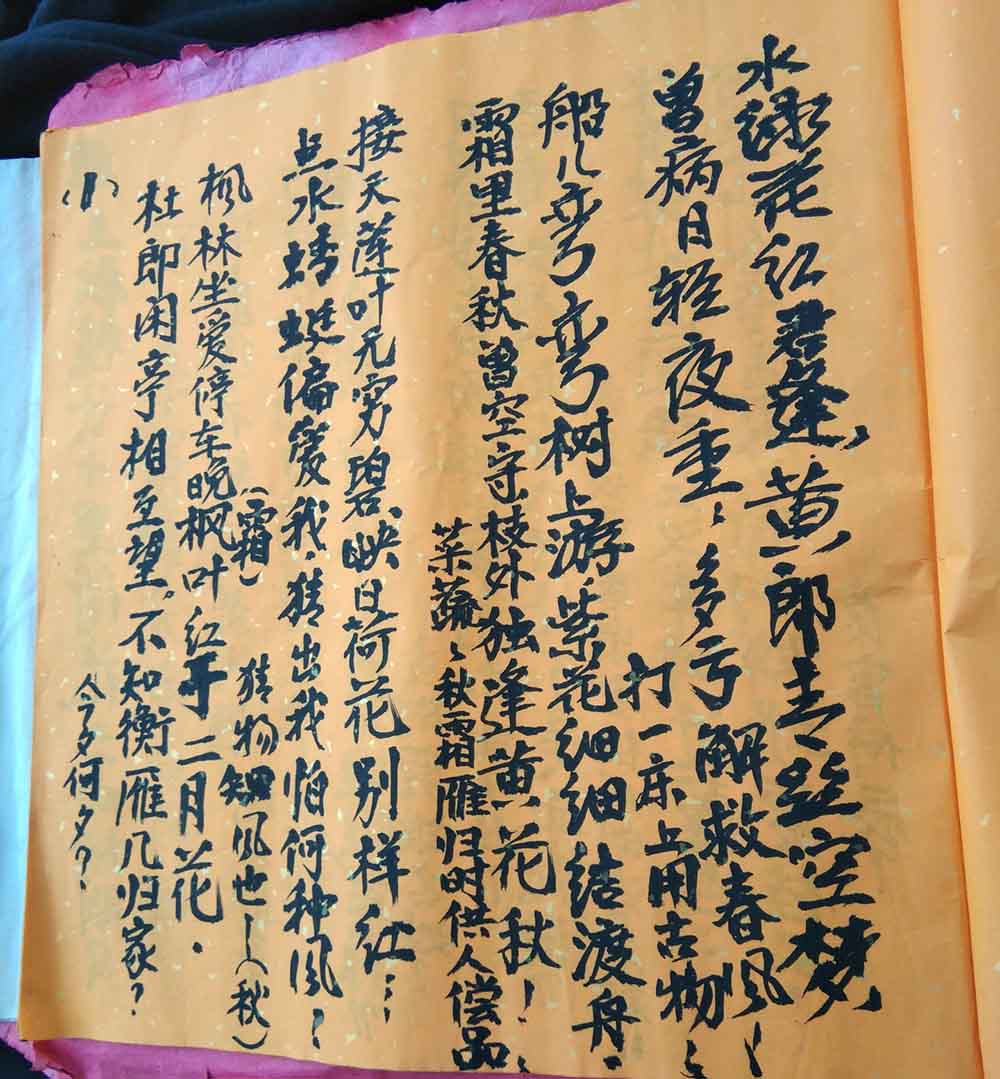 水绿花红君逢,黄郎青丝空梦,
曾病日轻夜重;多亏解救春风!
打一床上用古物;
船儿弯弯弯树上游紫花细细结渡舟.
霜里春秋曾空守枝外独逢黄花秋!:
菜蔬、秋霜雁归时供人偿品
接天莲叶无穷碧映日荷花别样红:
点水蜻蜓偏爱我.猜出我怕何种风!
(霜) 猜物细风也~(秋)
枫林坐爱停车晚枫叶红于二月花.
杜郎闲亭相互望。不知衡雁几归家?
今夕何夕?
(1)